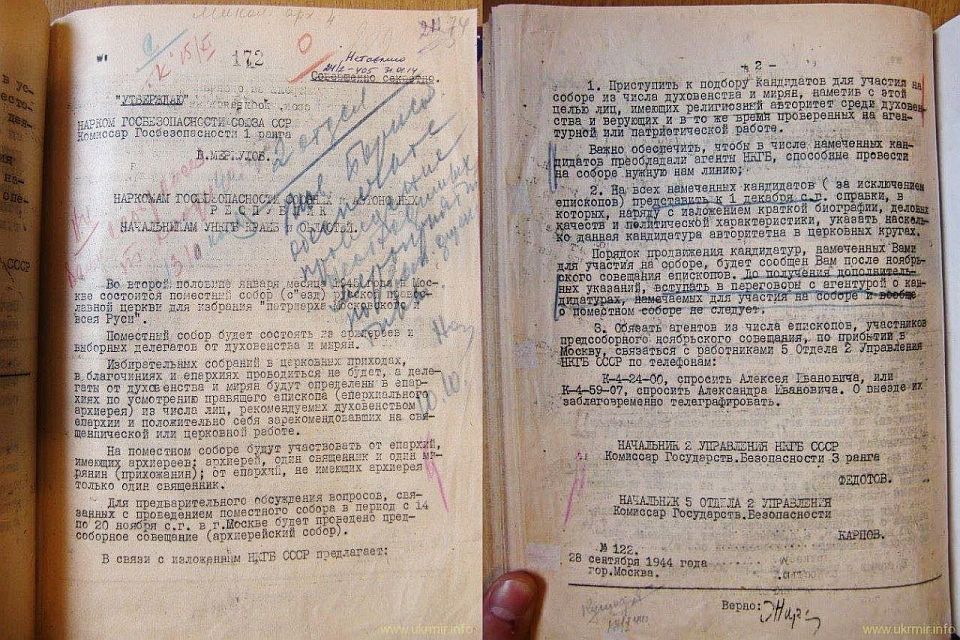 172
Совершенно секретно.
"УТВЕРЖДАЮ"
НАРКОМ ГОСБЕЗОПАСНОСТИ СОЮЗА ССР
Комиссар Госбезопасности 1 ранга
В.МЕРКУЛОВ.
2 отдел
НАРКОМАМ ГОСБЕЗОПАСНОСТИ СОЮЗНЫХ И АВТОНОМНЫХ
РЕСПУБЛИК
НАЧАЛЬНИКАМ УНКГБ КРАЕВ И ОБЛАСТЕЙ.
Во второй половине января месяца 1945 года в Мос-
кве состоится поместный собор (с"езд) русской право-
лавной церкви для избрания "патриарха Московского и
всея Руси".
Поместный собор будет состоять из архиереев и
выборных делегатов от духовенства и мирян.
Избирательных собраний в церковных приходах,
в благочиниях и епархиях проводиться не будет, а деле-
гаты от духовенства и мирян будут определены в епар-
хиях по усмотрению правящего епископа (епархиального
архиерея) из числа лиц, рекомендуемых духовенством
епархии и положительно себя зарекомендовавших на свя-
щеннической или церковной работе.
На поместном соборе будут участвовать от епархий,
имеющих архиереев: архиерей, один священник и один ми-
рянин (прихожанин); от епархий, не имеющих архиерея
только один священник.
Для предварительного обсуждения вопросов, свя-
занных с проведением поместного собора в период с 14
по 20 ноября с.г. в г.Москве будет проведено пред-
соборное совещание (архиерейский собор).
В связи с изложенным НКГБ СССР предлагает:
- 2 -
1. Приступить к подбору кандидатов для участия на
соборе из числа духовенства и мирян, наметив с этой
целью лиц, имеющих религиозный авторитет среди духовен-
ства и верующих и в то же время проверенных на аген-
турной или патриотической работе.
Важно обеспечить, чтобы в числе намеченных кан-
дидатов преобладали агенты НКГБ, способные провести
на соборе нужную нам линию;
2. На всех намеченных кандидатов ( за исключением
епископов) представить к 1 декабря с.г. справки, в
которых, наряду с изложением краткой биографии, деловых
качеств и политической характеристики, указать насколь-
ко данная кандидатура авторитетна в церковных кругах.
Порядок продвижения кандидатур, намеченных Вами
для участия на соборе, будет сообщен Вам после ноябрь-
ского совещания епископов. До получения дополнитель-
ных указаний, вступать в переговоры с агентурой о кан-
дидатурах, намечаемых для участия на соборе и вообще
о поместном соборе не следует.
3. Обязать агентов из числа епископов, участников
предсоборного ноябрьского совещания, по прибытии в
Москву, связаться с работниками 5 Отдела 2 Управления
НКГБ СССР по телефонам:
К-4-24-00, спросить Алексея Ивановича, или
К-4-59-07, спросить Александра Ивановича. О выезде их
заблаговременно телеграфировать.
НАЧАЛЬНИК 2 УПРАВЛЕНИЯ НКГБ СССР
Комиссар Государств.Безопасности 3 ранга
ФЕДОТОВ.
НАЧАЛЬНИК 5 ОТДЕЛА 2 УПРАВЛЕНИЯ
Комиссар Государств.Безопасности
КАРПОВ.
№ 122.
28 сентября 1944 года
гор.Москва.
Верно:
www.ukrmir.info
www.ukrmir.info